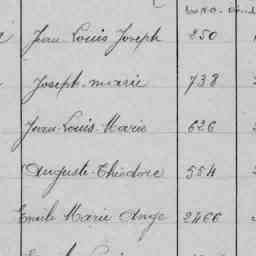 Jean Louis Joseph 250
Joseph-marie 738
Jean-Louis-Marie 626
Auguste-Théodore 554
Emile Marie Ange 2466